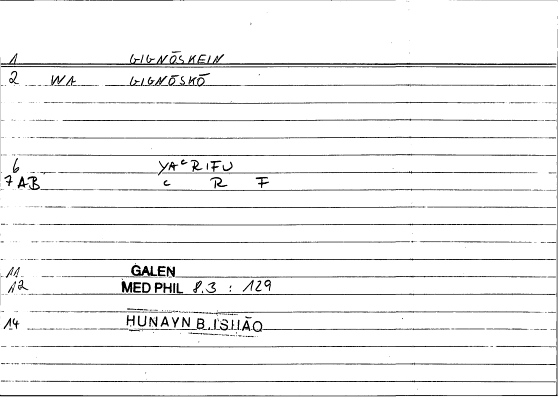 1 GIGNŌSKEIN
2 WA GIGNŌSKŌ
6 YAᶜRIFU
7 AB ᶜ R F
11 GALEN
12 MED PHIL 8.3 : 129
14 HUNAYN B. ISḤĀQ